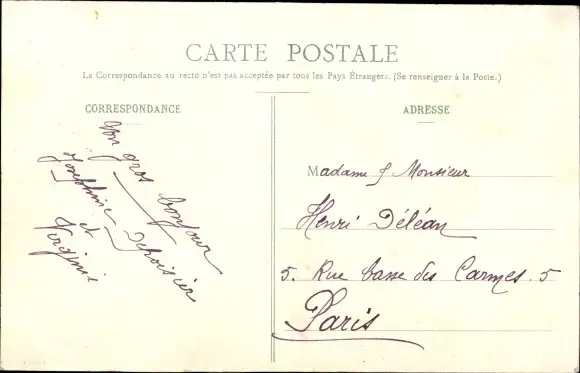 CARTE POSTALE
La Correspondance au recto n'est pas acceptée par tous les Pays Étrangers. (Se renseigner à la Poste.)
CORRESPONDANCE
gros bonjour
Joséphine
et
Virginie
ADRESSE
Madame & Monsieur
Henri Déléan
5. Rue basse des Carmes. 5
Paris